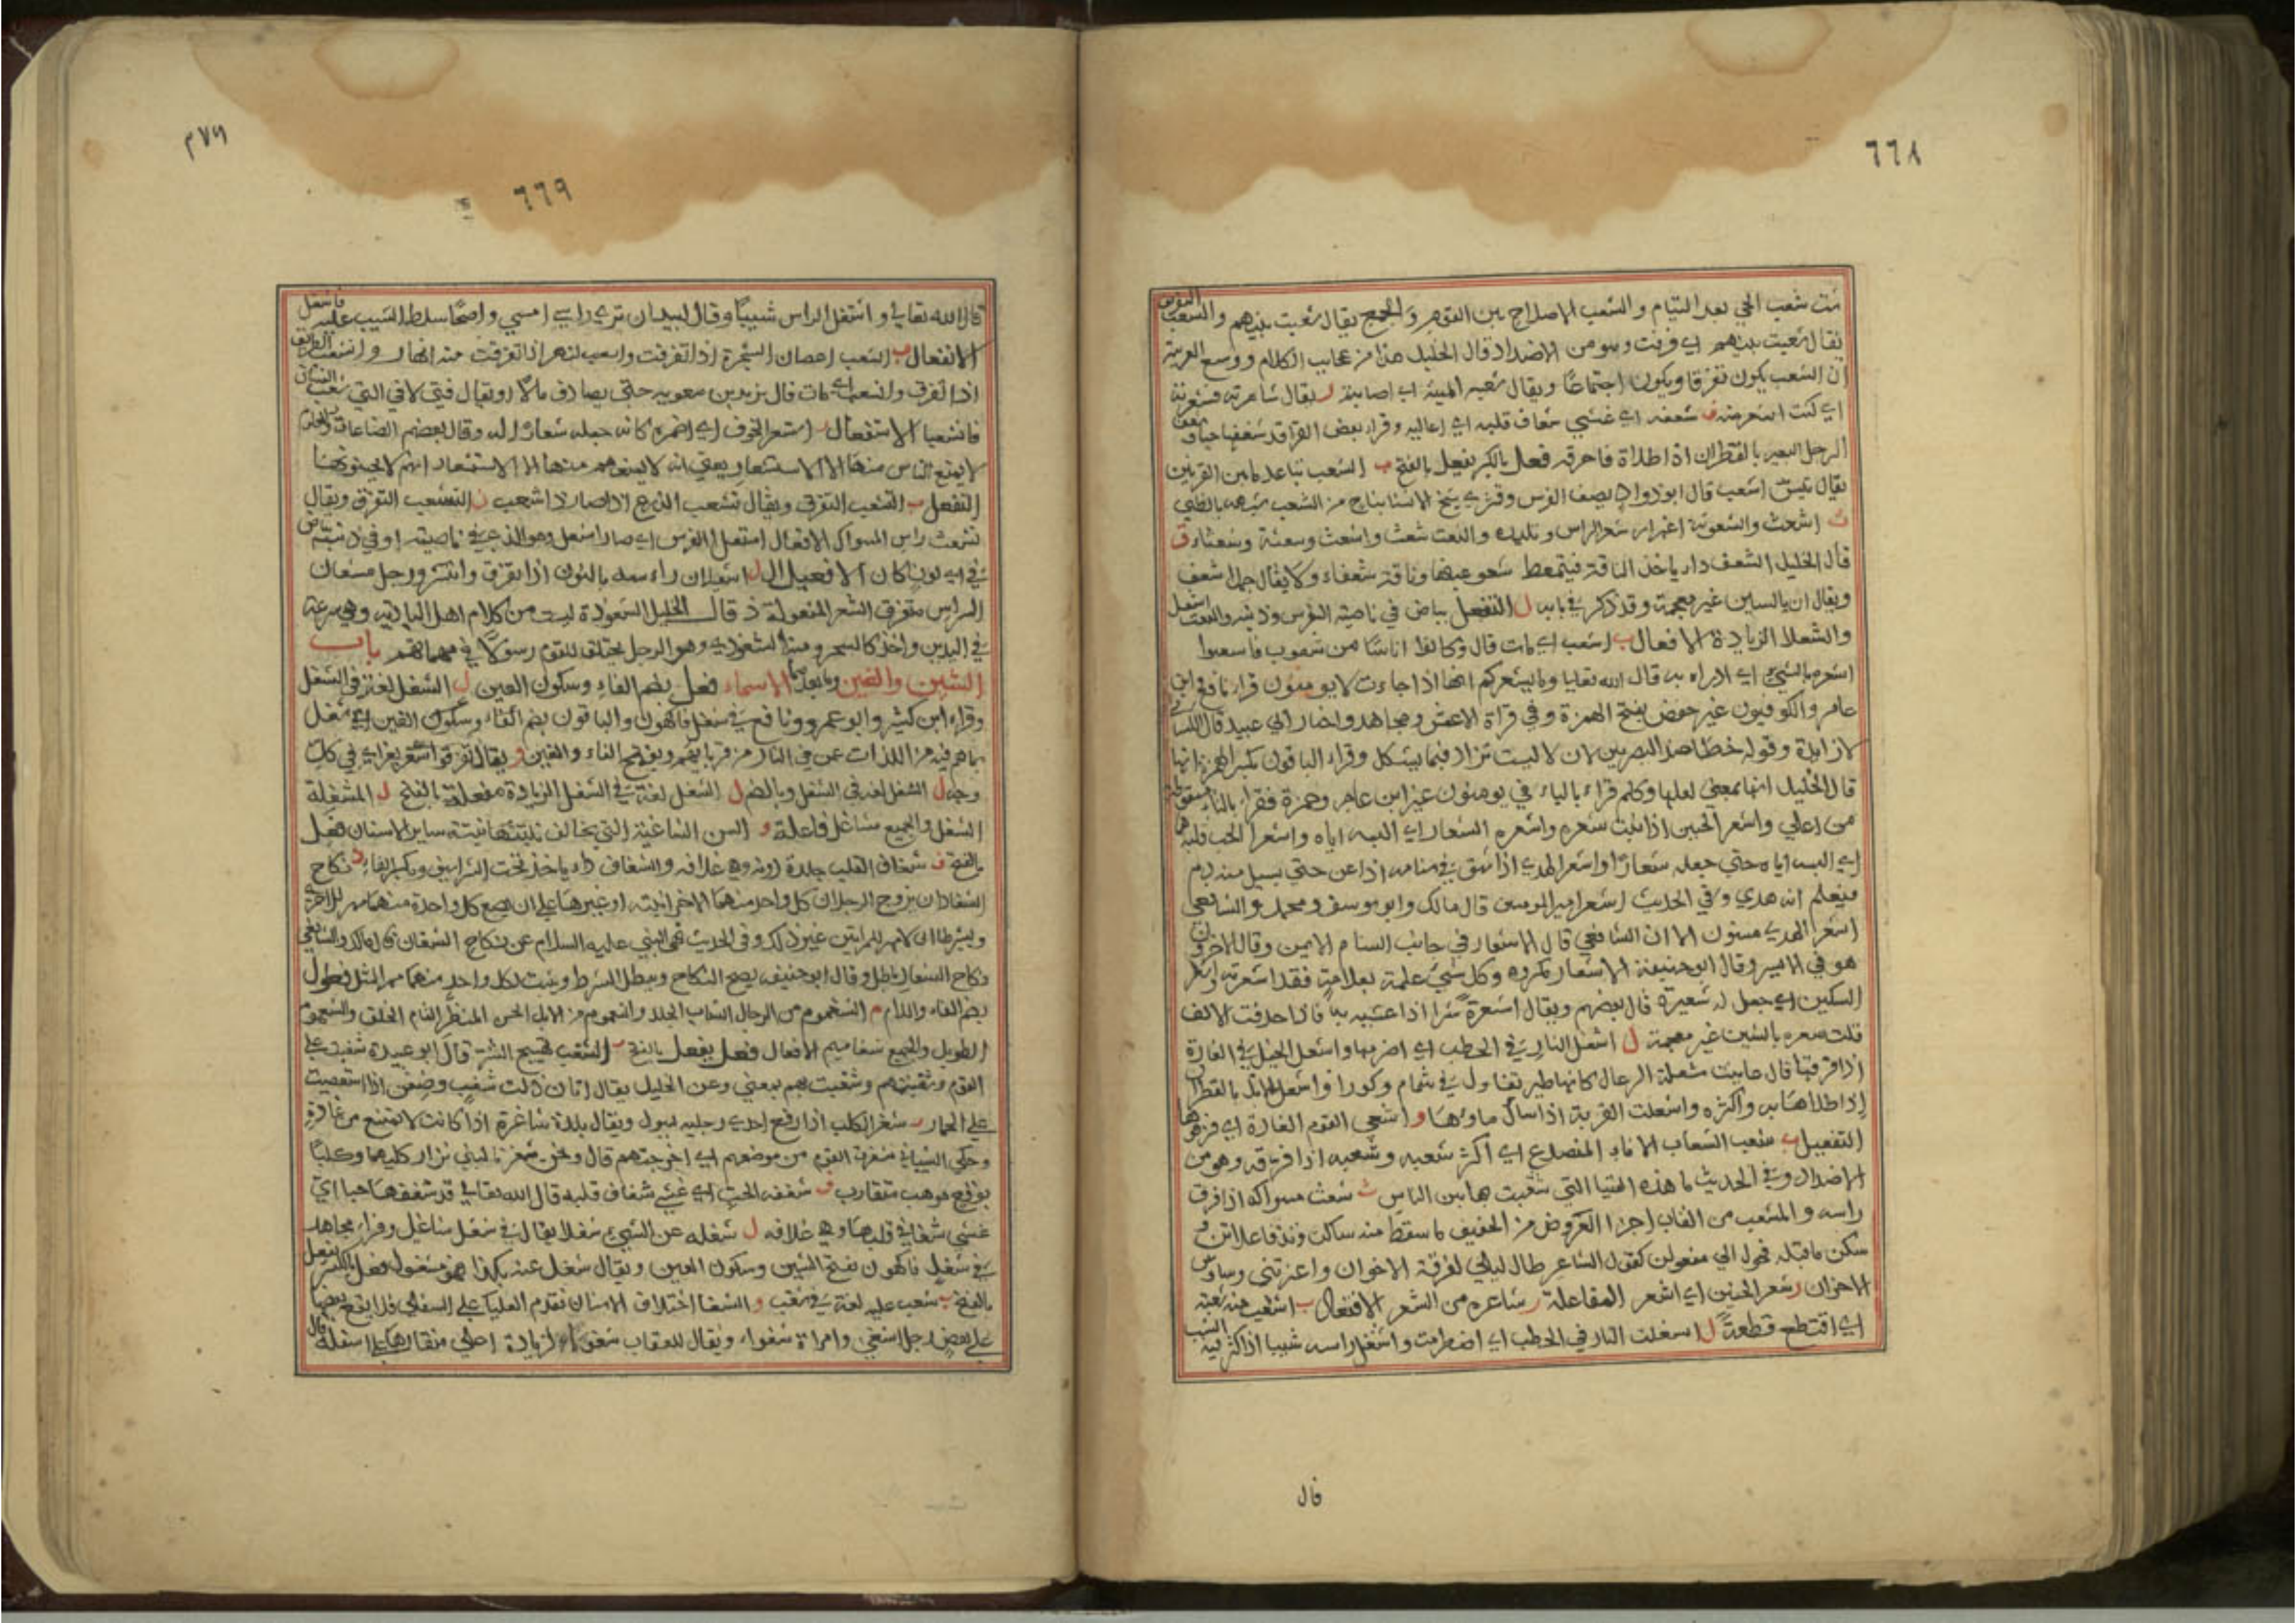 ٦٦٨
شت شعب الحي بعد التيام والشعب الاصلاح بين القوم والجمع يقال شعبت بينهم والشعب التفريق
يقال شعبت بينهم اي فرقت وهو من الاضداد قال الخليل هذا من عجايب الكلام ووسع العربية
ان الشعب يكون تفرقا ويكون اجتماعا ويقال شعبه المنية اي اصابته ر يقال شاعرته فشعرته
اي كنت اشعر منه ف شعفه اي غشي شعاف قلبه اي اعاليه وقراء بعض القرا قد شعفها حبا وشعف
الرجل البعير بالقطران اذا طلاه فاحرقه فعل بالكسر يفعل بالفتح ب الشعب تباعد ما بين القرنين
يقال تيس اشعب قال ابو دواد يصف الفرس وقصرى شنج الانسا نباح من الشعب شبهه بالظبي
ث اشعث والشعوثة اغبرار شعر الراس وتلبده والنعت شعث واشعث وشعثة وشعثاء ف
قال الخليل الشعف داء ياخذ الناقة فيتمعط شعر عينها وناقة شعفاء ولا يقال جمل اشعف
ويقال انه بالسين غير معجمة وقد ذكر في بابه ل التفعل بياض في ناصية الفرس وذنبه والنعت اشعل
والشعلا الزيادة الافعال ب اشعب اي مات قال وكانوا اناسا من شعوب فاشعبوا
اشعره بالشيء اي ادراه به قال الله تعالى وما يشعركم انها اذا جاءت لا يومنون قرا نافع وابن
عامر والكوفيون غير حفص بفتح الهمزة وفي قراة الاعمش ومجاهد واختار ابي عبيد قال الكسائي
لا زايدة وقوله خطا عند البصريين لان لا ليست تزاد فيما يشكل وقراء الباقون بكسر الهمزة انها
قال الخليل انها بمعني لعلها وكلهم قراء بالياء في يومنون غير ابن عامر وحمزة فقراء بالتاء
من اعلي واشعر الجنين اذا نبت شعره واشعره الشعار اي البسه اياه واشعر الحب قلبه
اي البسه اياه حتي جعله شعارا واشعر الهدي اذا شق في سنامه اذا طعن حتي يسيل منه دم
فيعلم انه هدي وفي الحديث اشعر امير المومنين قال مالك وابو يوسف ومحمد والشافعي
اشعر الهدي مسنون الا ان الشافعي قال الاشعار في جانب السنام الايمن وقال الاخرون
هو في الايسر وقال ابو حنيفة الاشعار مكروه وكل شيء علمته بعلامة فقد اشعرته واشعر
السكين اي جعل له شعيرة قال بعضهم ويقال اشعرة شرا اذا غشيه به فاذا حذفت الالف
قلت سعره بالسين غير معجمة ل اشعل النار في الحطب اي اضرمها واشعل الخيل في الغارة
اذا فرقها قال عاينت مشعلة الرعال كانها طير تغاول في شمام وكورا واشعل ابله بالقطران
اذا طلاها به واكثره واشعلت القربة اذا سال ماؤها و اشعي القوم الغارة اي فرقوها
التفعيل ب شعب الشعاب الاناء المنصدع اي اكثر شعبه وشعبه اذا فرقه وهو من
الاضداد وفي الحديث ما هذه الفتيا التي شعبت بها بين الناس ث شعث مسواكه اذا فرق
راسه والمشعب من القاب اجزا العروض من الخفيف ما سقط منه ساكن وتد فاعلاتن و
سكن ما قبله فحول الي مفعولن كقول الشاعر طال ليلي لفرقة الاخوان واعترتني وساوس
الاحزان ر شعر الجنين اي اشعر المفاعلة ر شاعره من الشعر الافتعال ب اشتعب منه شعبة
اي اقتطع قطعة ل اشتعلت النار في الحطب اي اضطرمت واشتعل راسه شيبا اذا كثر فيه الشيب
قال
٢٧٩
٦٦٩
قال الله تعالي واشتعل الراس شيبا وقال لبيد ان تري راسي امسي واضحا سلط الشيب عليه فاشتعل
الانفعال ب انشعب اغصان الشجرة اذا تفرقت وانشعب النهر اذا تفرقت منه انهار وانشعب الطريق
اذا تفرق وانشعب اي مات قال يزيد بن معوية حتي يصادف مالا او يقال فتي لاقي التي تشعب الفتيان
فانشعبا الاستفعال ر استشعر الخوف اي اضمره كانه جعله شعارا له وقال بعضهم
لا يمنع الناس منها الا الاستشعار يعني انه لا يمنعهم منها الا الاستشعار انهم لا يحسنونها
التفعل ب التشعب التفرق ويقال تشعب الذرع اذا صار ذا شعب ث التشعث التفرق ويقال
تشعث راس المسواك الافعلال اشعل الفرس اي صار اشعل وهو الذي في ناصيته او في ذنبه بياض
في اي لون كان الافعيلال ل اشعان راسه بالنون اذا تفرق وانتشر ورجل مشعان
الراس متفرق الشعر المفعولة ذ قال الخليل الشعوذة ليست من كلام اهل البادية وهي سرعة
في اليدين واخذ كالسحر ومنه الشعوذي وهو الرجل يختلف للقوم رسولا في مهماتهم باب
الشين والغين وما بعدهما الاسماء فعل بضم الفاء وسكون العين ل الشغل لغة في الشغل
وقراء ابن كثير وابو عمرو ونافع في شغل فاكهون والباقون بضم الفاء وسكون الغين اي شغل
بما هم فيه من اللذات عمن في النار من قرباتهم وبفتح الفاء والعين ر يقال تفرقوا شغر بغر اي في كل
وجه ل الشغل لغة في الشغل وبالضم ل الشغل لغة في الشغل الزيادة مفعلة بالفتح ل المشغلة
الشغل والجميع مشاغل فاعلة و السن الشاغية التي يخالف نبتتها نبتة ساير الاسنان فعل
بالفتح ف شغاف القلب جلدة دونه وهي غلافه والشغاف داء ياخذ تحت الشراسيف وبكسر الفاء ر نكاح
الشغار ان يزوج الرجلان كل واحد منهما الاخر ابنته او غيرها علي ان بضع كل واحدة منهما مهر للاخري
ويشرطا ان لا مهر للمراتين غير ذلك وفي الحديث نهي النبي عليه السلام عن نكاح الشغار قال مالك والشافعي
نكاح الشغار باطل وقال ابو حنيفة يصح النكاح ويبطل الشرط ويثبت لكل واحد منهما مهر المثل فعلول
بضم الفاء واللام م الشغموم من الرجال الشاب الجلد والشغموم من الابل الحسن المنظر التام الخلق والشغموم
الطويل والجميع شغاميم الافعال فعل يفعل بالفتح ب الشغب تهييج الشر قال ابو عبيدة شغبت علي
القوم وشغبتهم وشغبت بهم بمعني وعن الخليل يقال اتان ذات شغب وضغن اذا استعصت
علي الحمار ر شغر الكلب اذا رفع احدي رجليه ليبول ويقال بلدة شاغرة اذا كانت لا تمتنع من غارة
وحكي الشيباني شغرت القوم من موضعهم اي اخرجتهم قال ونحن شغرنا ابني نزار كليهما وكلبا
بوقع مرهب متقارب ف شغفه الحب اي غشي شغاف قلبه قال الله تعالي قد شغفها حبا اي
غشي شغاف قلبها وهي غلافه ل شغله عن الشيء شغلا يقال في شغل شاغل وقراء مجاهد
في شغل فاكهون بفتح الشين وسكون الغين ويقال شغل عنه بكذا فهو مشغول فعل بالكسر يفعل
بالفتح ب شغب عليه لغة في شغب و الشغا اختلاف الاسنان تقدم العليا علي السفلي فلا يقع بعضها
علي بعض رجل اشغي وامراة شغواء ويقال للعقاب شغواء لزيادة اعلي منقارها علي اسفله قال